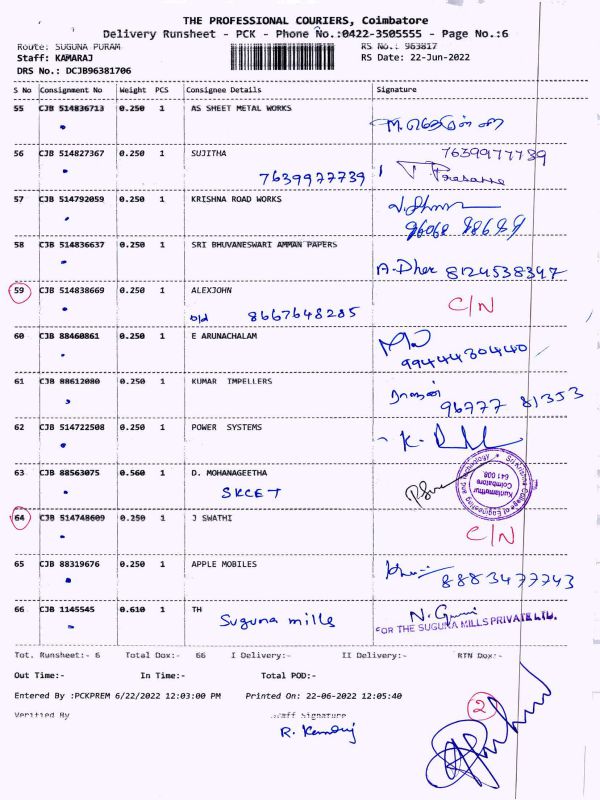 THE PROFESSIONAL COURIERS, Coimbatore
Delivery Runsheet - PCK - Phone No.:0422-3505555 - Page No.:6
Route: SUGUNA PURAM RS No.: 963817
Staff: KAMARAJ RS Date: 22-Jun-2022
DRS No.: DCJB96381706
S No Consignment No Weight PCS Consignee Details Signature
55 CJB 514836713 0.250 1 AS SHEET METAL WORKS
56 CJB 514827367 0.250 1 SUJITHA 7639977739
7639977739
57 CJB 514792059 0.250 1 KRISHNA ROAD WORKS
58 CJB 514836637 0.250 1 SRI BHUVANESWARI AMMAN PAPERS
A. Dher 8124538347
59 CJB 514838669 0.250 1 ALEXJOHN C/N
o/d 8667648285
60 CJB 88460861 0.250 1 E ARUNACHALAM
9944430440
61 CJB 88612080 0.250 1 KUMAR IMPELLERS
96777 81353
62 CJB 514722508 0.250 1 POWER SYSTEMS
63 CJB 88563075 0.560 1 D. MOHANAGEETHA
SKCET
Sri Krishna College of Engineering and Technology
Kuniamuthur
Coimbatore
641 008.
64 CJB 514748609 0.250 1 J SWATHI
C/N
65 CJB 88319676 0.250 1 APPLE MOBILES
8883477743
66 CJB 1145545 0.610 1 TH
Suguna mills
FOR THE SUGUNA MILLS PRIVATE LTD.
Tot. Runsheet:- 6 Total Dox:- 66 I Delivery:- II Delivery:- RTN Dox:-
Out Time:- In Time:- Total POD:-
Entered By :PCKPREM 6/22/2022 12:03:00 PM Printed On: 22-06-2022 12:05:40
Verified By Staff Signature
2